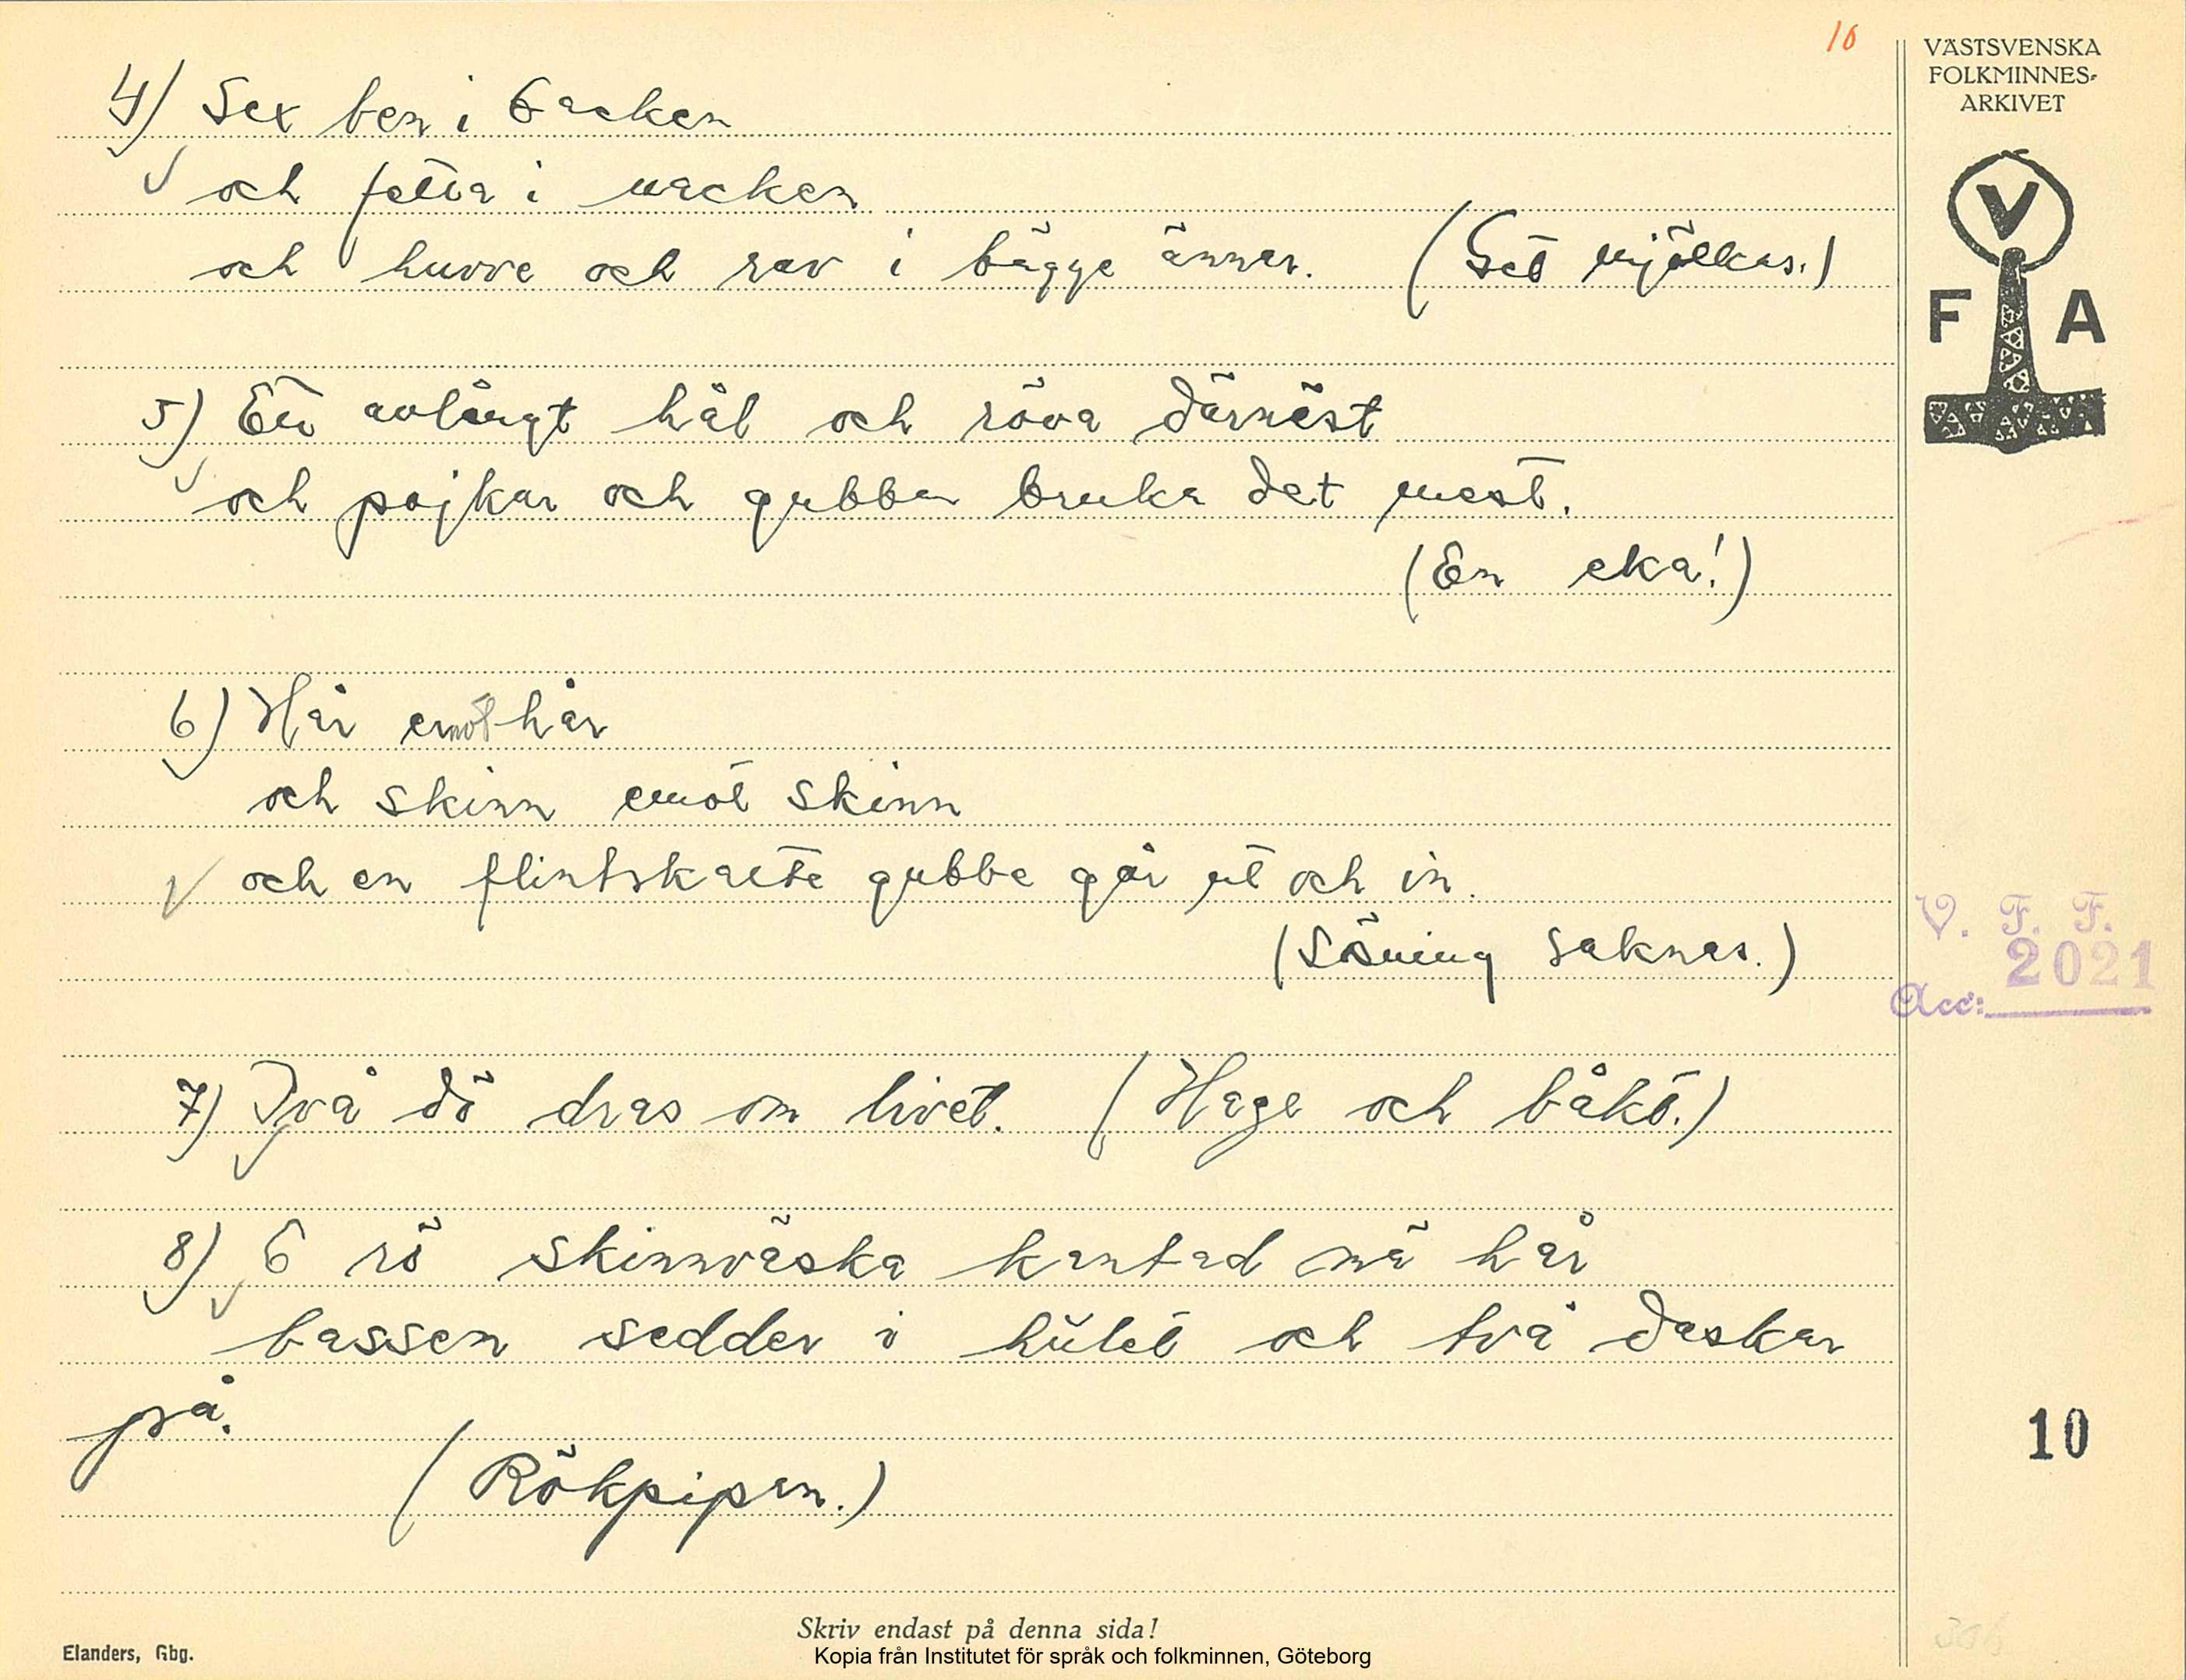 16
VÄSTSVENSKA
FOLKMINNES-
ARKIVET
V
F A
4) Sex ben i backen
och fötta i nacken
och huvve och rav i bägge änner. (Get mjölkas.)
5) Ett avlångt hål och röva därnäst
och pojkar och gubbar bruka det mest.
(En eka!)
6) Hår emot hår
och skinn emot skinn
och en flintskallte gubbe går ut och in.
(Lösning saknas.)
V. F. F.
Acc: 2021
7) Två dö dras om livet. (Hage och båkt.)
8) E rö skinnväska kantad mä hår
bassen sedder i hület och två daskar
på.
(Rökpipan.)
10
Skriv endast på denna sida!
Elanders, Gbg.
Kopia från Institutet för språk och folkminnen, Göteborg